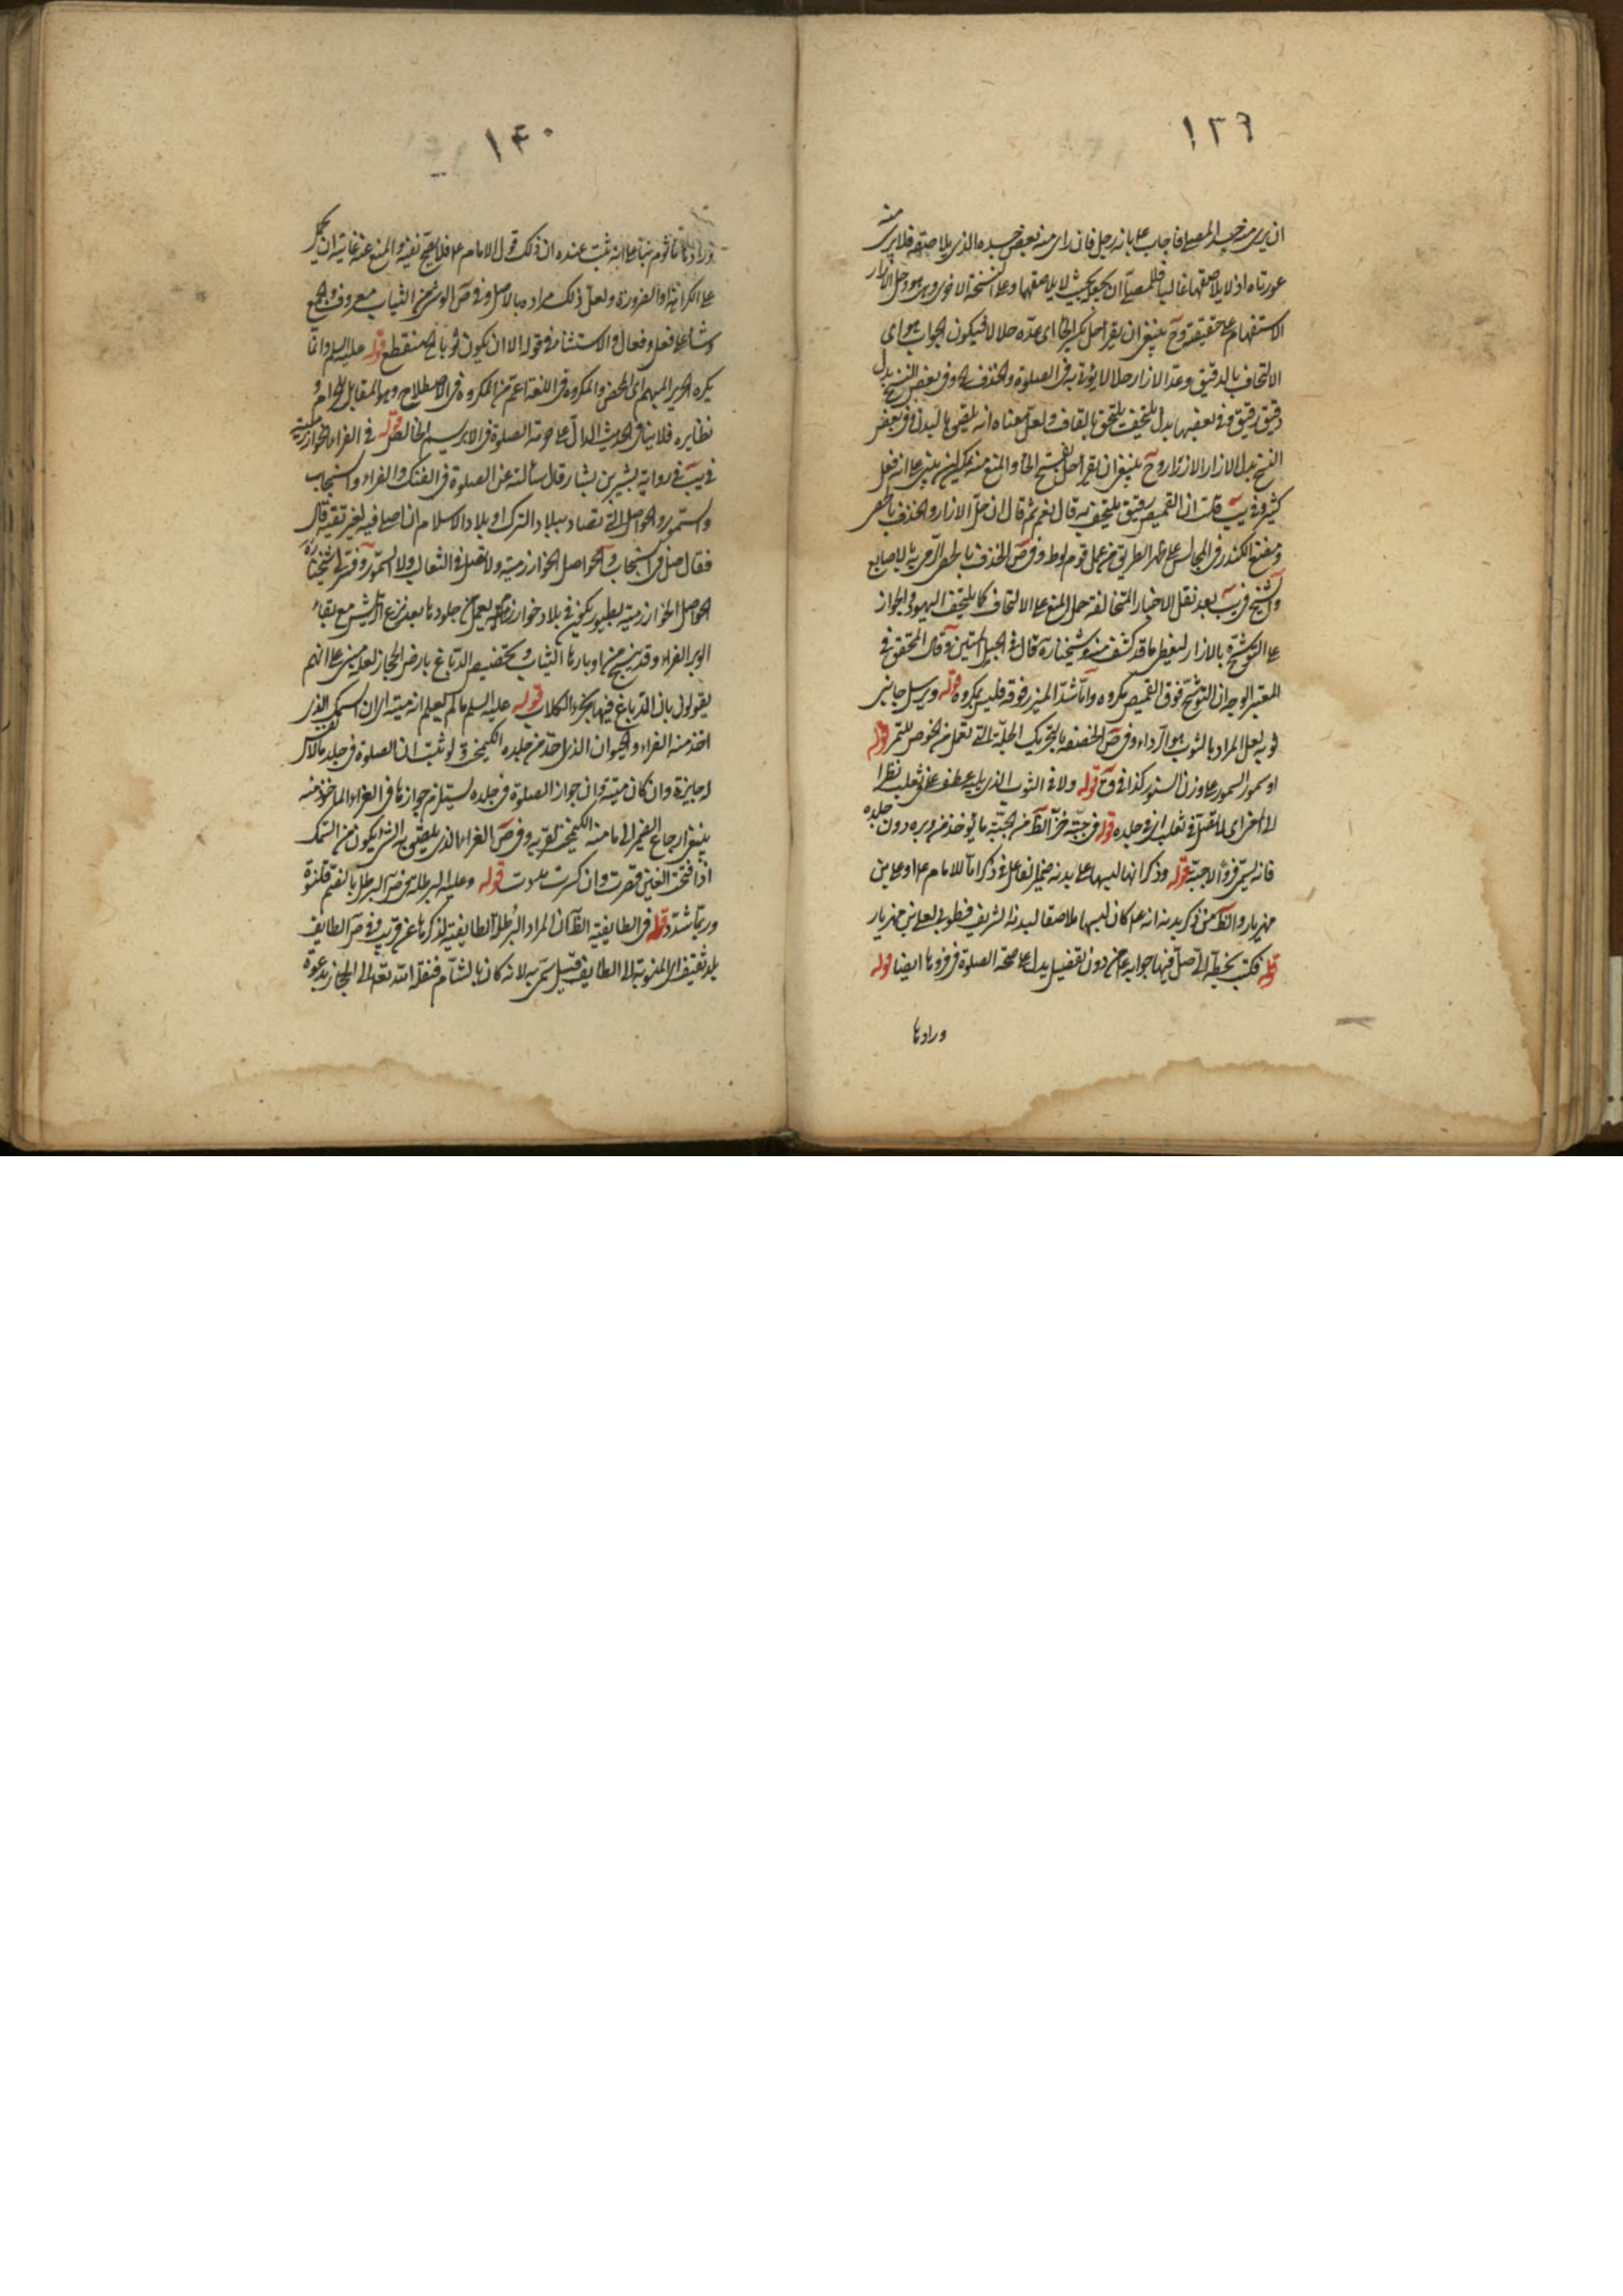 ١٣٩
ان يرى منه جسد المصلي فاجاب ع بانه رجل فان راى منه بعض جسده الذى يلاصقه فلا يرى منه
عورتاه اذ لا يلاصقها غالبا فللمصلي ان بحيث لا يلاصقها وعلى النسخة الاخرى وهو وحل الازار
الاستفهام على حقيقته وح ينبغي ان يقرأ احل بكسر الحاء اى عده حلالا فيكون الجواب هو اى
الالتحاف بالدقيق وعد الازار حلالا يؤتى به فى الصلوة والخذف وفى بعض النسخ بدل
دقيق رقيق وفى بعضها بدل يلتحف يلتحق بالقاف ولعل معناه انه يلصق بالبدن وفى بعض
النسخ بدل الازار الازرار وح ينبغي ان يقرأ احل بفتح الحاء والمنع منه يمكن ان يبنى على انه فعل
كثير وفى يب قلت ان القميص رقيق يلتحف به قال نعم ثم قال ان حل الازرار والخذف بالحصى
ومضغ الكندر فى المجالس على ظهر الطريق من عمل قوم لوط وفى ص الخذف بالحصى الرمى به بالاصابع
والشيخ فى يب بعد نقل الاخبار المتخالفة حمل المنع على الالتحاف كما يلتحف اليهود والجواز
على التوشح بالازار ليغطى ما قد كشف منه وشيخنا ره قال فى الحبل المتين وقال المحقق فى
المعتبر الوجه ان التوشح فوق القميص مكروه واما شد المئزر فوقه فليس بمكروه قوله ويرسل جانبى
ثوبه لعل المراد بالثوب هو الرداء وفى ص الخصفة بالتحريك الجلة التى تعمل من الخوص للتمر قوله
او سمور السمور على وزن السنور كذا فى ق قوله ولا فى الثوب الذى يليه عطف على فى ثعلب نظرا
الى المعنى اى لا تصل فى ثعلب اى فى جلده قوله فى جبة خز الظ من الجبة ما يؤخذ من وبره دون جلده
فانه ليس فروا لا جبة قوله وذكر انه لبسها على بدنه ضمير الفاعل فى ذكر اما للامام ع او على بن
مهزيار والظ من ذكر بدنه انه ع كان لبسها ملاصقا لبدنه الشريف فطوبى لعلى بن مهزيار
قوله فكتب بخطه صل فيها جوابه ع من دون تفصيل يدل على صحة الصلوة فى فروها ايضا قوله
ورادها
١٤٠
ورادها تأثوم بناء على انه ثبت عنده ان ذلك قول الامام ع فلا يصح نفيه والمنع عنه غايته ان يحمل
على الكراهة او الضرورة ولعل ذلك مراده بالاصل وفى ص الوشى من الثياب معروف والجمع
وشاء على فعل وفعال والاستثناء فى قوله الا ان يكون ثوبا منقطع قوله عليه السلم وانما
يكره الحرير المبهم اى المحض والمكروه فى اللغة اعم من المكروه فى الاصطلاح وهو المقابل للحرام و
نظايره فلا ينافى الحديث الدال على حرمة الصلوة فى الابريسم الخالص قوله فى الفراء الخوارزمية
فى يب فى رواية بشير بن بشار قال سألته عن الصلوة فى الفنك والفراء والسنجاب
والسمور والحواصل التى تصاد ببلاد الترك او بلاد الاسلام ان اصلى فيه لغير تقية قال
فقال صل فى السنجاب والحواصل الخوارزمية ولا تصل فى الثعالب ولا السمور وفسر شيخنا ره
الحواصل الخوارزمية بطيور يكون فى بلاد خوارزم يعمل من جلودها بعد نزع الريش مع بقاء
الوبر الفراء وقد ينسج من اوبارها الثياب وتخصيص الدباغ بارض الحجاز لعله مبنى على انهم
يقولون بان الدباغ فيها بخرء الكلاب قوله عليه السلم ما لم يعلم انه ميتة اى ان السمك الذى
اخذ منه الفراء والحيوان الذى اخذ من جلده الكيمخت لو ثبت ان الصلوة فى جلد ما لا نفس
له جايزة وان كان ميتة وان جواز الصلوة فى جلده يستلزم جوازها فى الغراء الماخوذ منه
ينبغي ارجاع الضمير الى ما منه الكيمخت لقربه وفى ص الغراء الذى يلصق به الشئ يكون من السمك
اذا فتحت الغين قصرت وان كسرت مددت قوله وعليه البرطلة فى ص البرطل بالضم قلنسوة
وربما شدد قوله فى الطايفية الظ ان المراد البرطلة الطايفية لذكرها عن قريب وفى ص الطايف
بلد ثقيف اى المنسوبة الى الطايف قيل سمى به لانه كان بالشام فنقله الله تعالى الى الحجاز بدعوة